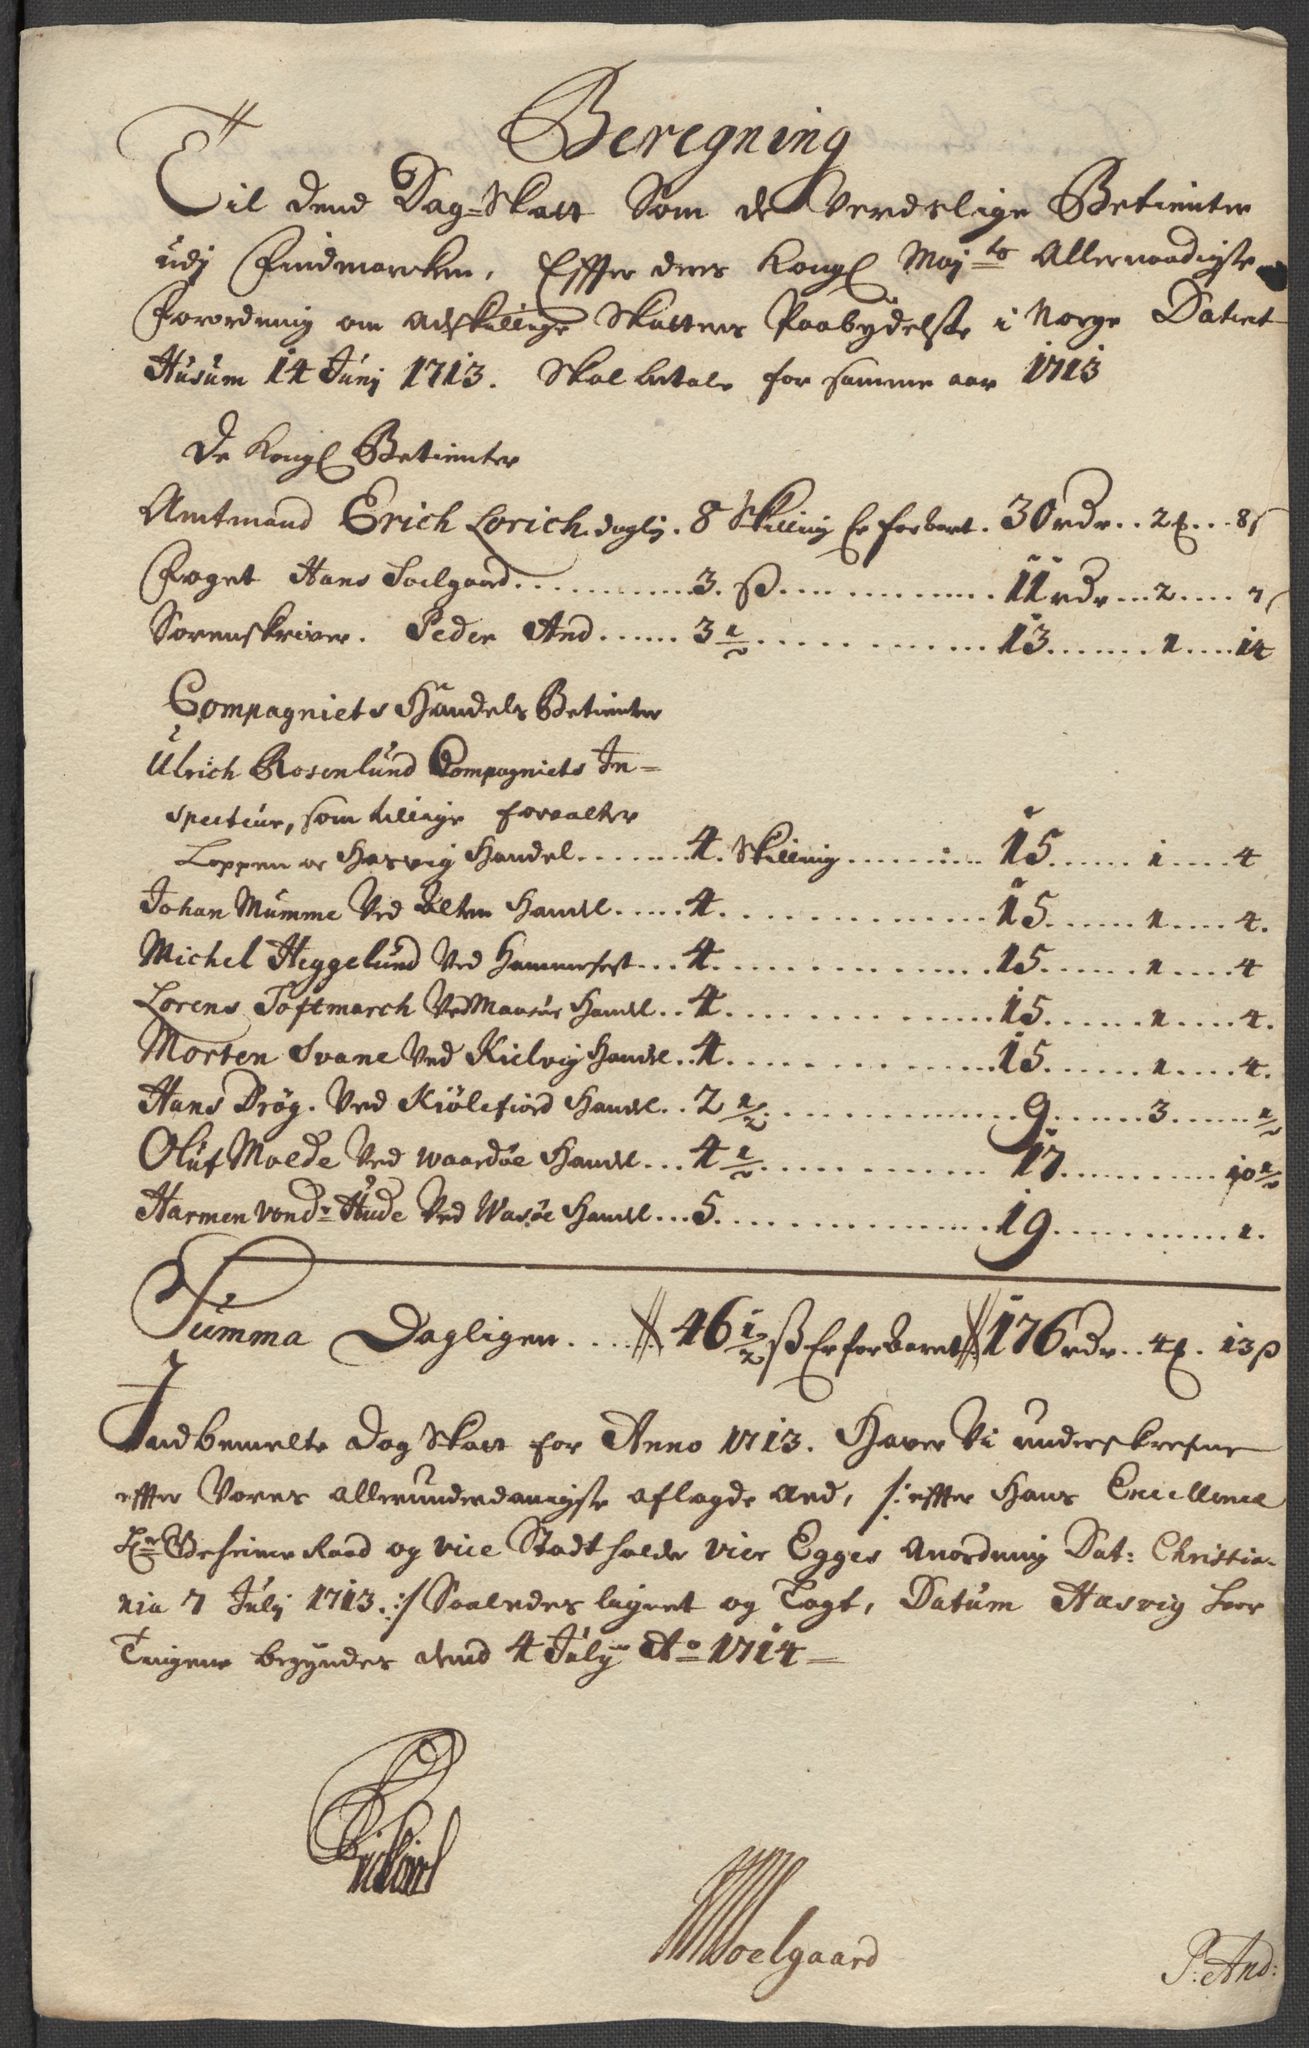 Beregning
Til dend Dag-Skatt Som de Verdslige Betiente
udj Findmarcken, Effter deris Kongl Maj:ts Allernaadigste
Forordning om adskillige Skatters Paabydelse i Norge Datert
Husum 14 Junj 1713. Skal betale for samme aar 1713
De Kongl Betiente
Amtmand Erich Lorich daglig. 8 Skilling Er forbert. 30 rdr. 2 ƒ. 8 s
Foget Hans Soelgaard 3. ß 11 rdr 2 7 s
Sorenskriver. Peder And 3 1/2 13 1 14
Compagniets Handels Betiente
Ulrich Rosenlund Compagniets In-
specteur, som tillige forvalter
Loppen oc Hasvig Handel 4. Skilling 15 1 4
Johan Mumme Ved Alten Handel 4 15 1 4.
Michel Heggelund Ved Hammerfest 4 15 1 4
Lorens Toftmarch Ved Maasøe Handel 4 15 1 4.
Morten Svane Ved Kielvig Handel 4 15 1 4.
Hans Brøg. Ved Kiølefiord Handel 2 1/2 9 3 1/2
Oluf Moede Ved Waardøe Handel 4 1/2 17 10 1/2
Harmen vondr Hude Ved Wasøe Handel 5 19 1.
Summa Dagligen 46 1/2 ß Er forbaret 176 rdr. 4 ƒ. 13 ß
Indbemelte Dag Skatt for Anno 1713. Haver Vi underskrefne
effter Vores allerunderdanigste aflagde Eed, /: effter Hans Excellence
Hr Geheime Raad og vice Stadtholder vier Egges Anordning Dat: Christia-
nia 7 Julij 1713. :/ Saaledes lignet og Tagt, Datum Hasvig
Tingene begyndes dend 4 Julij Ao 1714
Soelgaard
P: And: